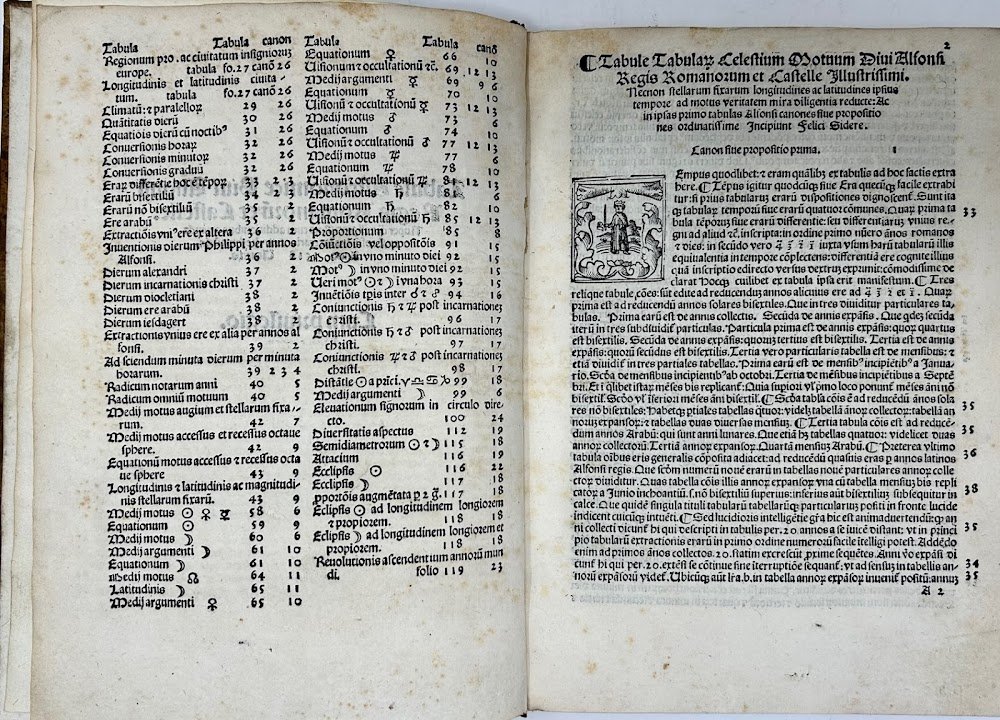 Tabula Tabula canon
Regionum pro. ac ciuitatum insigniorum
europe. tabula fo. 27 canō 26
Longitudinis et latitudinis ciuita-
tum. tabula fo. 27 canō 26
Climatū: & parallelorꝫ 29 26
Quātitatis dierū 30 26
Equatiōis dierū cū noctibꝰ 31 26
Conuersionis horaꝝ 32 26
Conuersionis minutoꝝ 32 26
Conuersionis graduū 32 26
Eraꝝ differētie hoc ē tēpoꝝ 33 2 3
Erarū bisextiliū 34 2
Erarū nō bisextiliū 35 2
Ere arabū 35 2
Extractiōis vniꝰ ere ex altera 36 2
Inuentionis dierum Philippi per annos
Alfonsi. 36 2
Dierum alexandri 37 2
Dierum incarnationis christi 37 2
Dierum diocletiani 38 2
Dierum ere arabū 38 2
Dierum iesdagert 38 2
Extractionis vnius ere ex alia per annos al
fonsi. 39 2
Ad sciendum minuta dierum per minuta
horarum. 39 2 3 4
Radicum notarum anni 40 5
Radicum omniū motuum 40 5
Medij motus augium et stellarum fixa-
rum. 42 7
Medij motus accessus et recessus octaue
sphere. 42 9
Equationū motus accessus & recessus octa
ue sphere 43 9
Longitudinis & latitudinis ac magnitudi-
nis stellarum fixarū. 43 9
Medij motus ☉ ♀ ☿ 58 6
Equationum ☉ 59 9
Medij motus ☽ 60 6
Medij argumenti ☽ 61 10
Equationum ☽ 61 10
Medij motus ☊ 64 11
Latitudinis ☽ 65 11
Medij argumenti ♀ 65 10
Tabula Tabula canō
Equationum ♀ 66 10
Uisionū & occultationū ⁊c. 69 12 13
Medij argumenti ☿ 69 9 6
Equationum ☿ 70 10
Uisionū & occultationū ☿ 73 12 13
Medij motus ♂ 73 6
Equationum ♂ 74 10
Uisionū & occultationū ♂ 77 12 13
Medij motus ♃ 77 6
Equationum ♃ 78 10
Uisionū & occultationum ♃ 81 12 13
Medij motus ♄ 81 6
Equationum ♄ 82 10
Uisionū & occultationum ♄ 85 12 13
Proportionum 85 8
Cōiūctiōis vel oppositiōis 91 15
Motꝰ ☉ in vno minuto diei 92 15
Motꝰ ☽ in vno minuto diei 92 15
Ueri motꝰ ☉ & ☽ ī vna hora 93 15
Inuētiōis tp̄is inter ☌ & ☍ 94 16
Coniunctionis ♄ & ♃ post incarnationem
christi. 96 17
Coniunctionis ♄ & ♂ post incarnationem
christi. 97 17
Coniunctionis ♃ & ♂ post incarnationem
christi. 98 17
Distātie ☉ a prīci. ♈ ♎ ♋ ♑ 99 18
Medij argumenti ☽ 99 6
Eleuationum signorum in circulo dire-
cto. 100 24
Diuersitatis aspectus 112 19
Semidiametrorum ☉ & ☽ 115 18
Attacium 116 19
Eclipsis ☉ 116 22
Eclipsis ☽ 117 18
ꝓportōis augmētata ꝑ 2 g̃. 117 18
Eclipsis ☉ ad longitudinem longiorem
& propiorem. 118 18
Eclipsis ☽ ad longitudinem longiorem et
propiorem. 118 18
Reuolutionis ascendentium annorū mun
di. folio 119 23
2
¶ Tabule Tabularꝫ Celestium Motuum Diui Alfonsi
Regis Romanorum et Castelle Illustrissimi.
Necnon stellarum fixarum longitudines ac latitudines ipsius
tempore ad motus veritatem mira diligentia reducte: Ac
in ipsas primo tabulas Alfonsi canones siue propositio
nes ordinatissime Incipiunt Felici Sidere.
Canon siue propositio prima. 1
Empus quodlibet: & eram quālibꝫ ex tabulis ad hoc factis extra
here. ¶ Tēpus igitur quodcūqꝫ siue Era quecūqꝫ facile extrabi
tur: si prius tabularuꝫ erarū dispositiones dignoscent̄. Sunt ita
qꝫ tabule temporū siue erarū quatuor cōmunes. Quaꝝ prima ta 33
bula tēporuꝫ siue erarū differentie: seu differentiaruꝫ vnius re-
gni ad aliud &c̄. inscripta: in ordine primo nūero ānos romanos
& dies: in secūdo vero q̄ 3̄ 2̄ 1̄ iuxta vsum harū tabularū illis
equiualentia in tempore cōplectens: differentiā ere cognite illius
quā inscriptio e directo versus dextruꝫ exprimit: cōmodissime de
clarat. Hocqꝫ cuilibet ex tabula ipsa erit manifestum. ¶ Tres
relique tabule, cōes: sūt edite ad reducendū annos alicuius ere ad q̄ 3̄ 2̄ et 1̄. Quaꝝ
prima est ad reducendū annos solares bisextiles. Que in tres diuiditur particulares ta-
bulas. Prima earū est de annis collectis. Secūda de annis expāsis. Que qdē secūda
iterū in tres subdiuidit̄ particulas. Particula prima est de annis expāsis: quoꝝ quartus
est bisextilis. Secūda de annis expansis: quorū tertius est bisextilis. Tertia est de annis
expāsis: quorū secūdus est bisextilis. Tertia vero particularis tabella est de mensibus: &
etiā diuidit̄ in tres particulares tabellas. Prima earū est de mensibꝰ incipiētibꝰ a Janua-
rio. Scōa de mensibus incipientibꝰ ab octobri. Tertia de mēsibus incipiētibus a Septē
bri. Et ī qlibet istaꝝ mēses bis replicant̄. Quia supiori vl̄ pmo loco ponunt̄ mēses āni nō
bisextil̄. Sꝫ vl̄ īferiori mēses āni bisextil̄. ¶ Scōa tabla cōis ē ad reducēdū ānos sola
res nō bisextiles: Habetqꝫ ptiales tabellas qtuor: videlꝫ tabellā ānoꝝ collectoꝝ: tabellā an 35
norū expansoꝝ: & tabellas duas diuersas mensiuꝫ. ¶ Tertia tabula cōis est ad reducē-
dum annos Arabū: qui sunt anni lunares. Que etiā hꝫ tabellas quatuor: videlicet duas 35
annoꝝ collectorū. Tertiā annoꝝ expansoꝝ. Quartā mensiuꝫ Arabū. ¶ Preterea vltimo
tabula oībus eris generalis cōposita adiacet: ad reducēdū quasuis eras ꝑ annos latinos 36
Alfonsi regis. Que scd̄m numerū noue erarū in tabellas noue particulares annoꝝ colle
ctoꝝ diuiditur. Quas tabella cōis illis annoꝝ expansoꝝ vna cū tabella mensiuꝫ bis repli
catoꝝ a Junio inchoantiū: s. nō bisextiliū superius: inferius aūt bisextiliū subsequitur in 38
calce. Que quidē singula tituli tabularū tabellarūqꝫ particulariuꝫ positi in fronte lucide
indicent cuicūqꝫ intuēti. ¶ Sed lucidioris intelligētie gr̄a hic est animaduertendū: qꝫ an
ni collecti dicunt̄ hi qui descripti in tabulis per. 20. annos a se iuicē distant: vt in princi 35
pio tabularū extractionis erarū in primo ordine numerorū facile itelligi potest. Addēdo
enim ad primos ānos collectos. 20. statim excrescūt ꝓxime seqūētes. Anni vō expāsi di
cunt̄ hi qui per. 20. extēsi se cōtinue sine iterruptiōe sequunt̄: vt ad sensuꝫ in tabellis an- 34
norū expāsorū videt̄. Ubicūqꝫ aūt lr̄a. b. in tabella annoꝝ expāsoꝝ inuenit̄ positū: annuꝫ 35
A 2